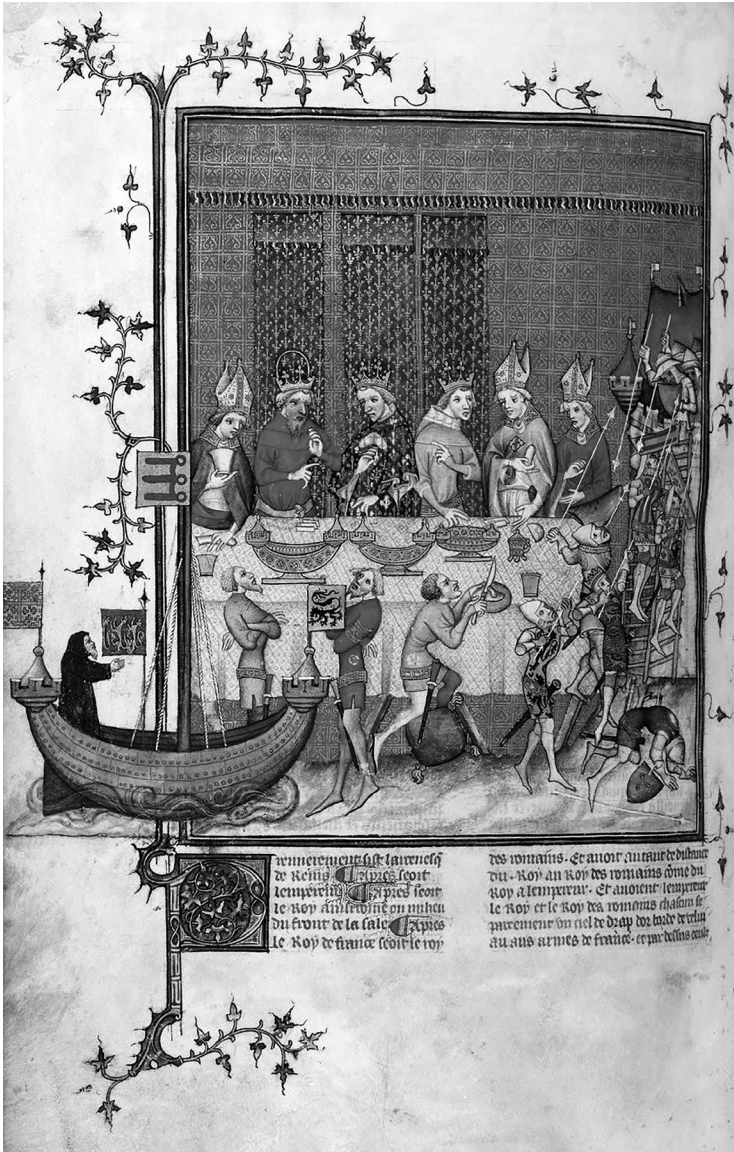 remierement sist larcevesq
de Reins Apres seoit
lempereur Apres seoit
le Roy ainsi comme ou milieu
du front de la sale Apres
le Roy de france seoit le roy
des romains. Et avoit autant de distance
du Roy au Roy des romains come du
Roy a lempereur. Et avoient lempereur
le Roy et le Roy des romains chascun se
parement un ciel de drap dor borde de velu
au aus armes de france. et par dessus ceulz